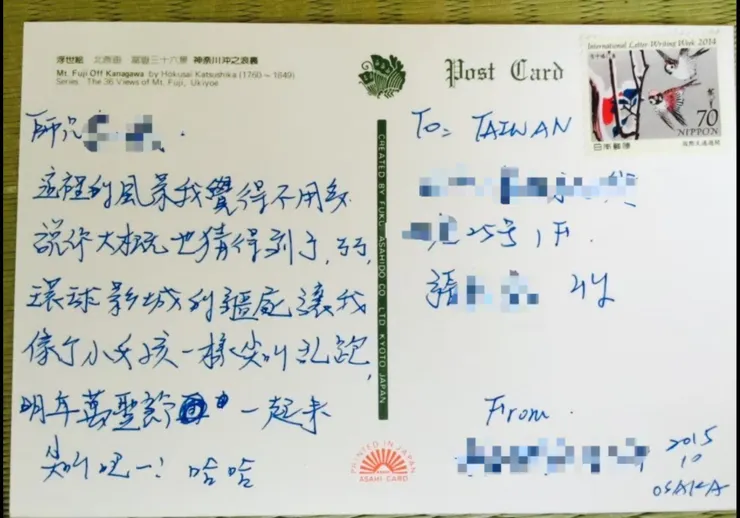 浮世絵 北斎画 富嶽三十六景 神奈川沖之浪裏
Mt. Fuji Off Kanagawa by Hokusai Katsushika (1760～1849)
Series The 36 Views of Mt. Fuji, Ukiyoe
Post Card
International Letter Writing Week 2014
70
NIPPON
日本郵便
CREATED BY FUKUI ASAHIDO CO. LTD KYOTO JAPAN
師兄
這裡的風景我覺得不用多
說你大概也猜得到了,
環球影城的讓我
像个小女孩一樣尖叫乱跑,
明年萬聖節 一起來
尖叫吧～! 哈哈
To: TAIWAN
25号1F.
張 收
From.
2015
10
OSAKA
PRINTED IN JAPAN
ASAHI CARD